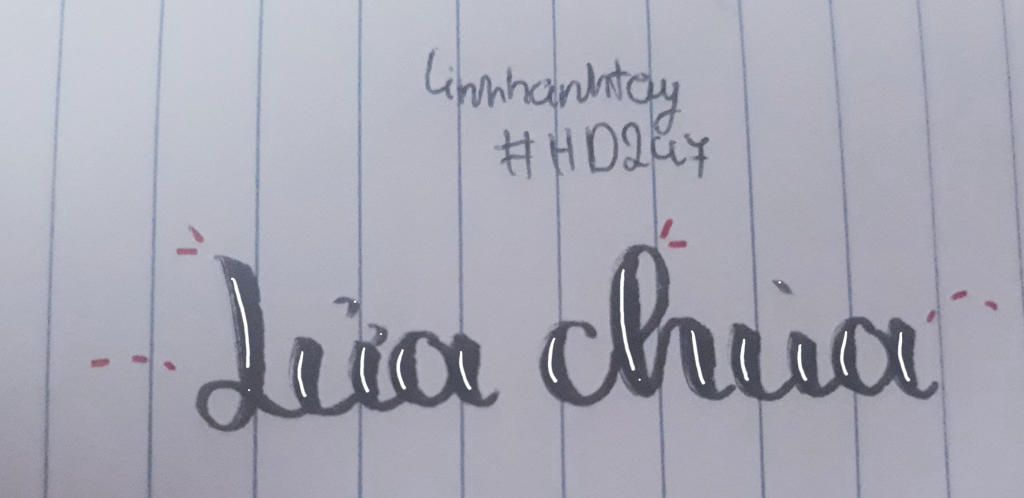 Linhhanhtay
#HD247
Lửa chùa